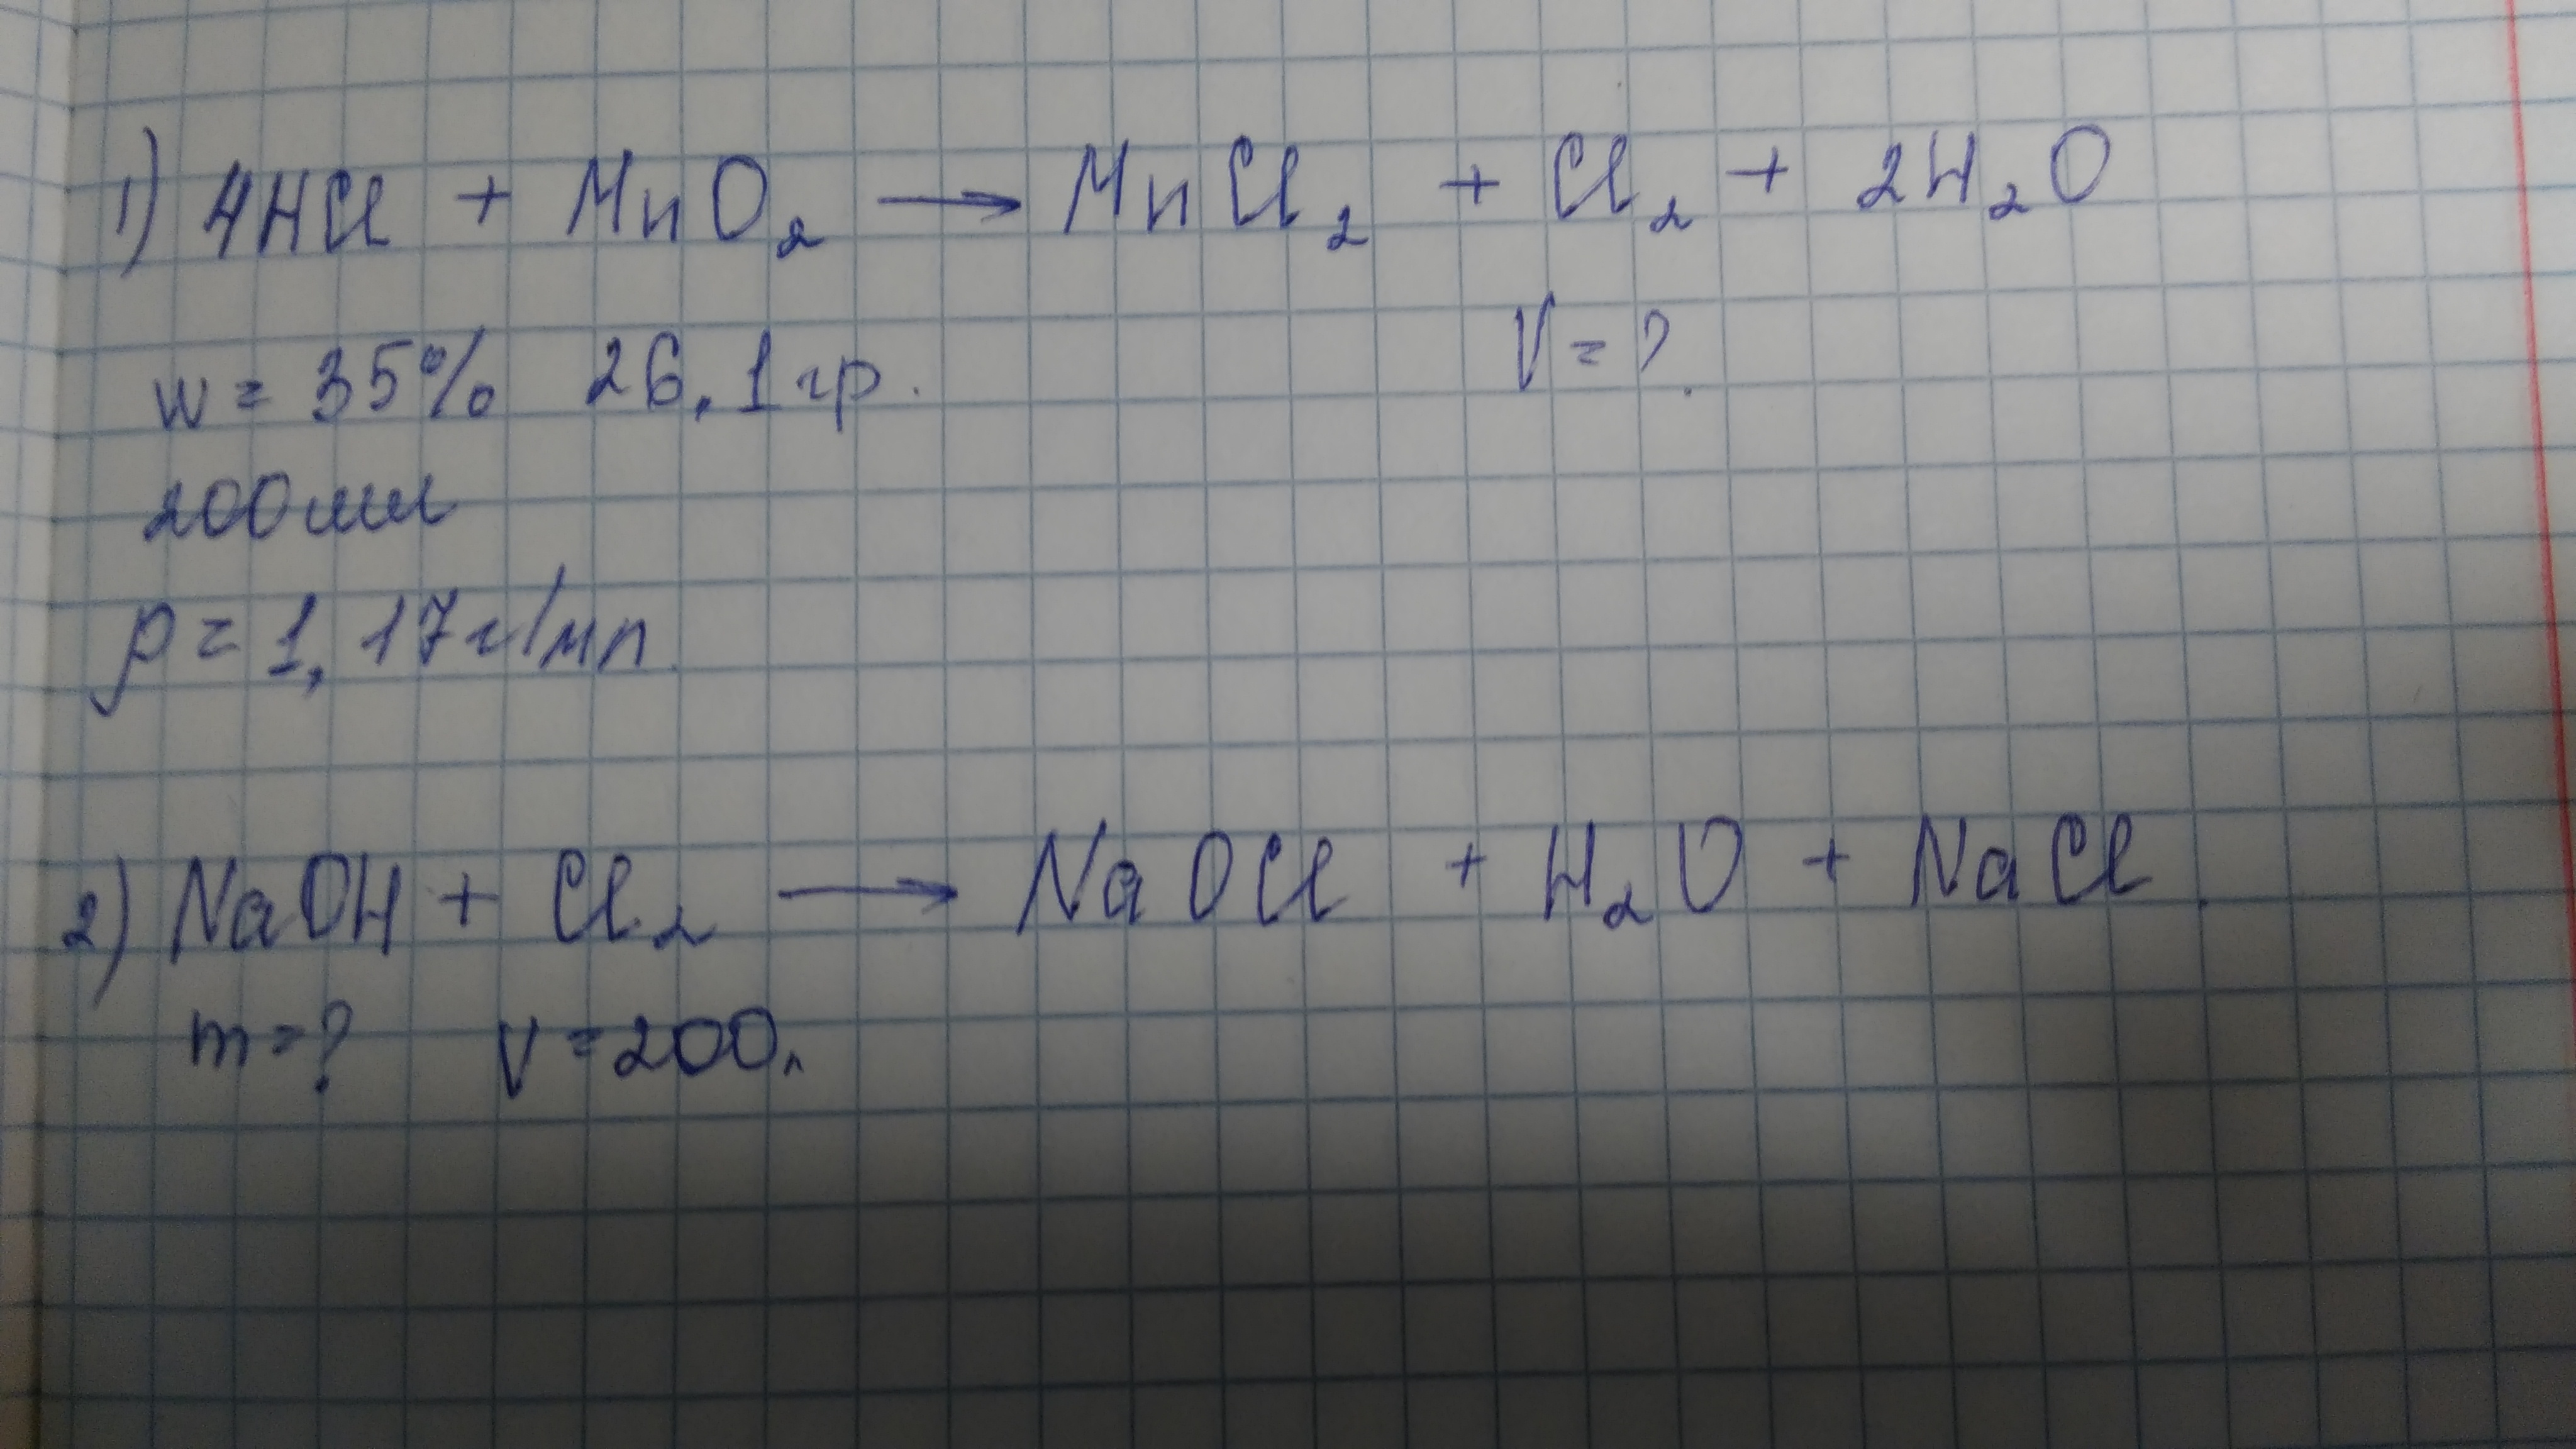 1) 4HCl + MnO₂ → MnCl₂ + Cl₂ + 2H₂O
w = 35% 26,1 гр. V = ?
200 мл
ρ = 1,17 г/мл
2) NaOH + Cl₂ → NaOCl + H₂O + NaCl.
m = ? V = 200 л